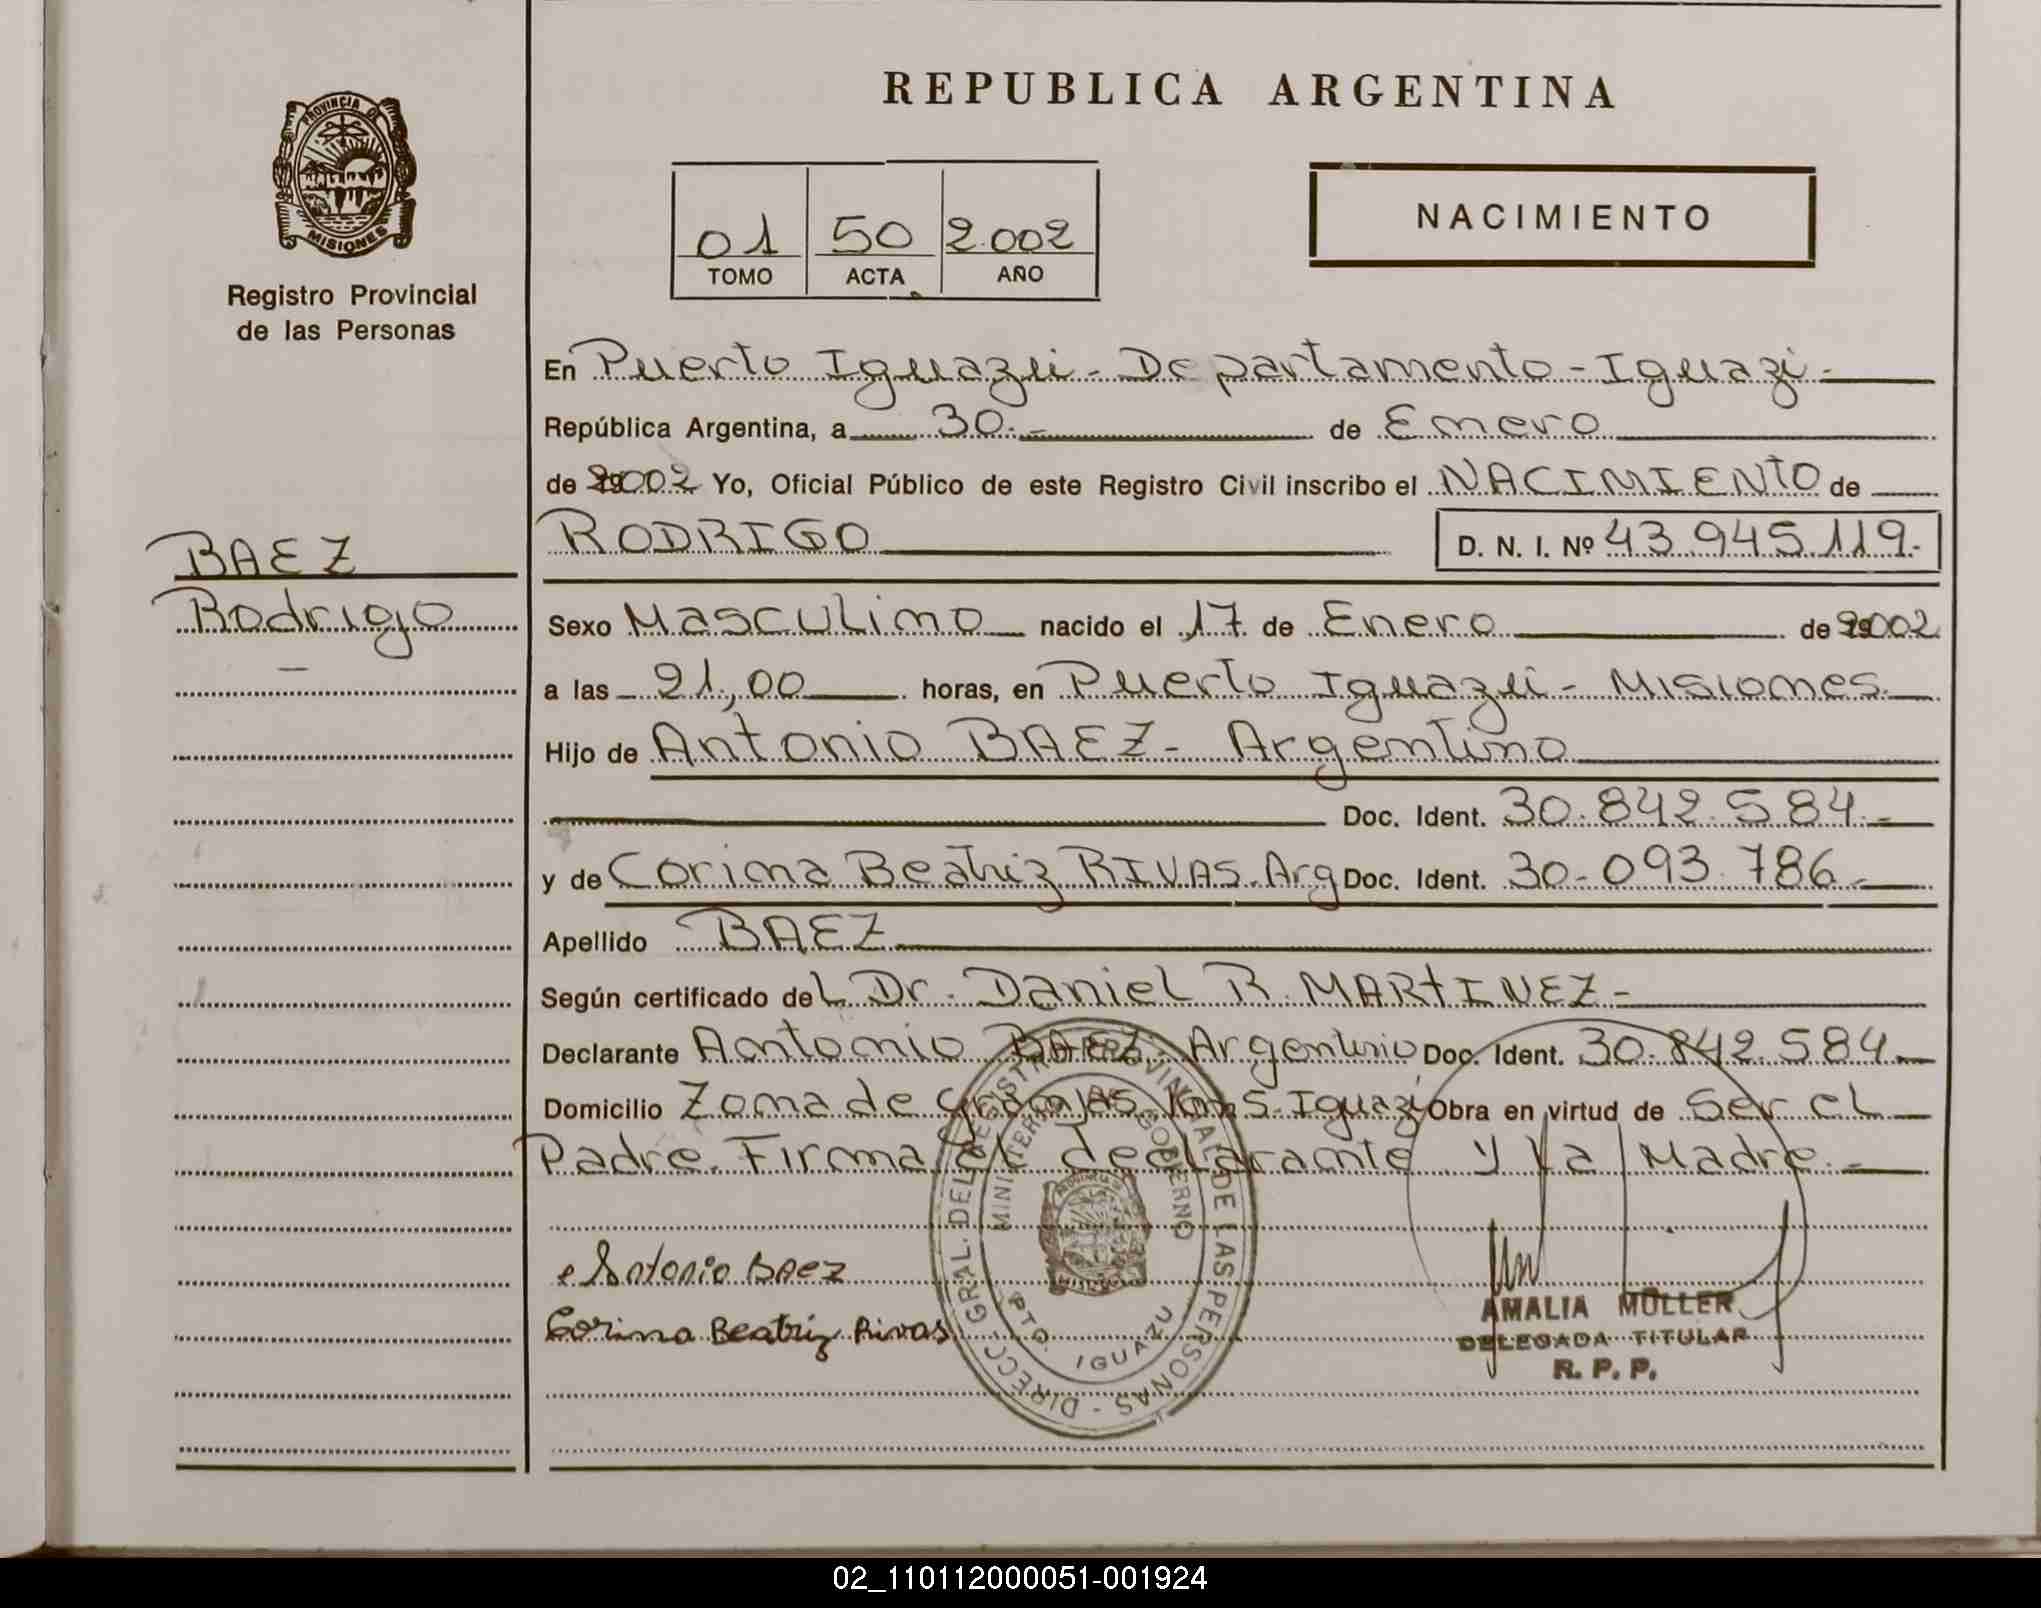 REPUBLICA ARGENTINA
PROVINCIA DE
MISIONES
Registro Provincial
de las Personas
01 50 2.002
TOMO ACTA AÑO
NACIMIENTO
En Puerto Iguazú - Departamento - Iguazú -
República Argentina, a 30.- de Enero
de 2002 Yo, Oficial Público de este Registro Civil inscribo el NACIMIENTO de
RODRIGO D. N. I. Nº 43.945.119.-
BAEZ
Rodrigo
Sexo Masculino nacido el 17 de Enero de 2002
a las 21,00 horas, en Puerto Iguazú - Misiones
Hijo de Antonio BAEZ - Argentino
Doc. Ident. 30.842.584.-
y de Corina Beatriz RIVAS. Arg Doc. Ident. 30.093.786.-
Apellido BAEZ
Según certificado del Dr. Daniel R. MARTINEZ -
Declarante Antonio BAEZ - Argentino Doc. Ident. 30.842.584.-
Domicilio Zona de Granjas Iguazú Obra en virtud de Ser el
Padre. Firma el declarante y la Madre.-
Antonio Baez
Corina Beatriz Rivas
DIRECC. GRAL. DEL REGISTRO PROVINCIAL DE LAS PERSONAS -
MINISTERIO DE GOBIERNO
PTO. IGUAZU
AMALIA MÜLLER
DELEGADA TITULAR
R. P. P.
02_110112000051-001924